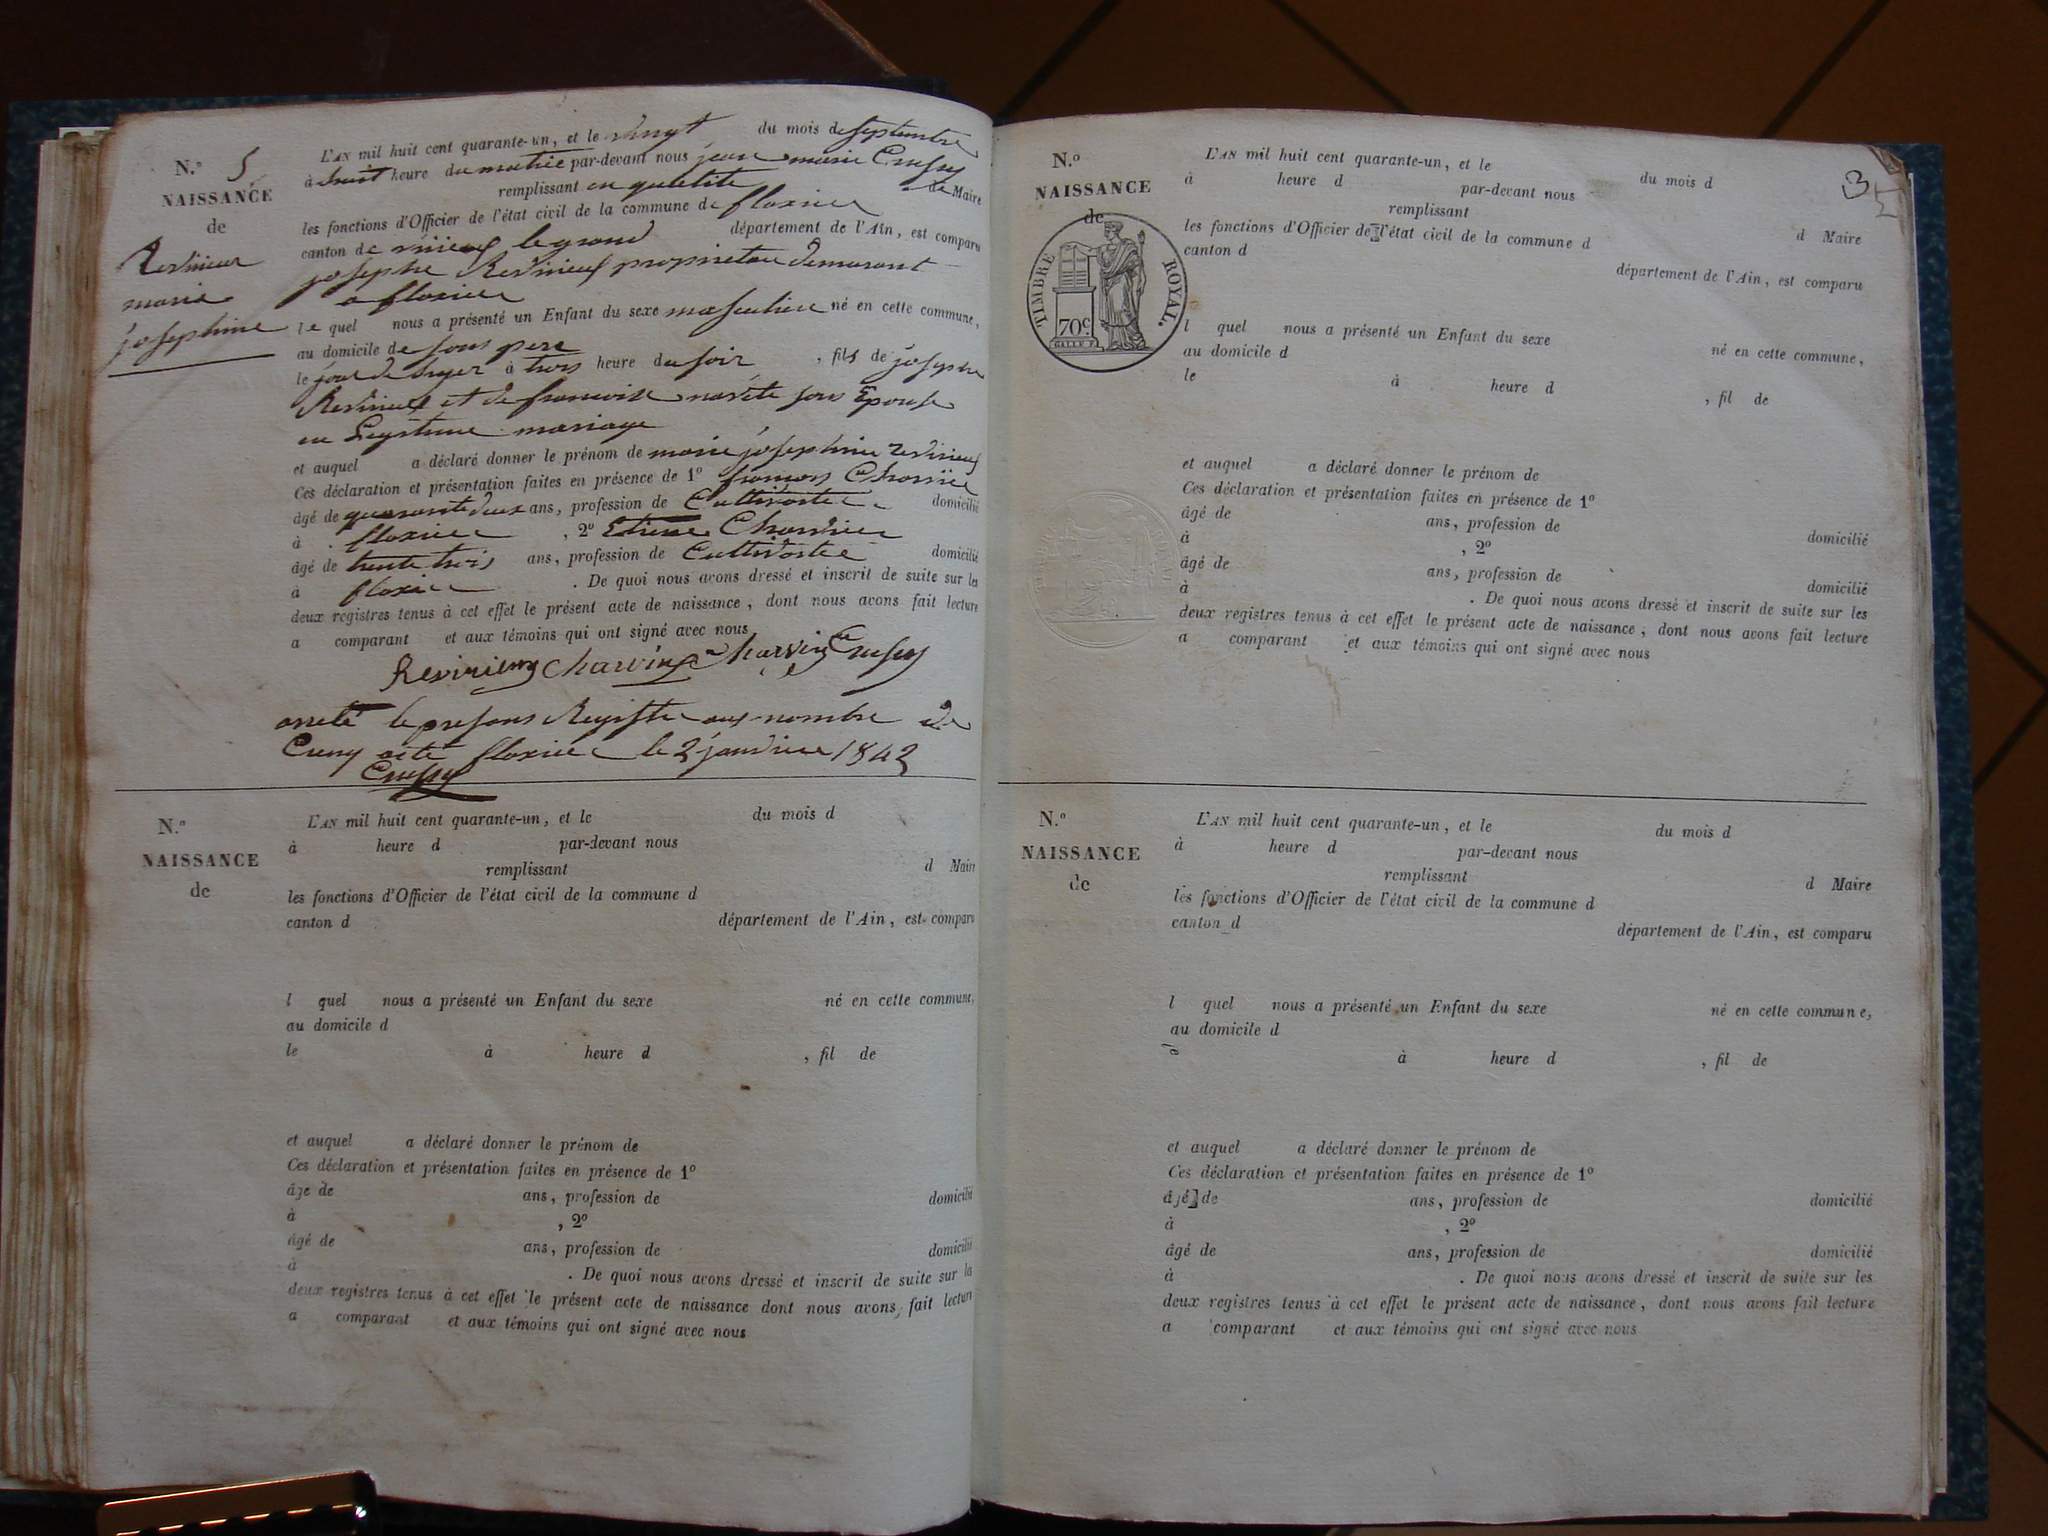 N.º 5
NAISSANCE
de
Revirieux
marie
josephine
L'AN mil huit cent quarante-un, et le vingt du mois de septembre
à huit heure du matin par-devant nous jean marie
remplissant en qualité de Maire
les fonctions d'Officier de l'état civil de la commune de floxieu
canton de virieux le grand département de l'Ain, est comparu
josephe Revirieux proprietau demurant
a floxieu
le quel nous a présenté un Enfant du sexe masculin né en cette commune,
au domicile de sons pere
le jour de hyer à trois heure du soir, fils de josephe
Revirieux et de francoise sons Epouse
en Legitime mariage
et auquel a déclaré donner le prénom de marie josephine revirieux
Ces déclaration et présentation faites en présence de 1º francois
âgé de quarante deux ans, profession de Cultivateur domicilié
à floxieu, 2º Etiene
âgé de trente trois ans, profession de Cultivateur domicilié
à floxieu. De quoi nous avons dressé et inscrit de suite sur les
deux registres tenus à cet effet le présent acte de naissance, dont nous avons fait lecture
a comparant et aux témoins qui ont signé avec nous
Revirieux charvin charvin
arreté le presons Registre aux nombre de
acte floxieu le 2 janvier 1842
N.º
NAISSANCE
de
L'AN mil huit cent quarante-un, et le du mois d
à heure d par-devant nous
remplissant d Maire
les fonctions d'Officier de l'état civil de la commune d
canton d département de l'Ain, est comparu
l quel nous a présenté un Enfant du sexe né en cette commune,
au domicile d
le à heure d , fil de
et auquel a déclaré donner le prénom de
Ces déclaration et présentation faites en présence de 1º
âge de ans, profession de domicilié
à , 2º
âgé de ans, profession de domicilié
à . De quoi nous avons dressé et inscrit de suite sur la
deux registres tenus à cet effet le présent acte de naissance dont nous avons, fait lecture
a comparant et aux témoins qui ont signé avec nous
3
N.º
NAISSANCE
de
TIMBRE ROYAL.
70c.
L'AN mil huit cent quarante-un, et le du mois d
à heure d par-devant nous
remplissant d Maire
les fonctions d'Officier de l'état civil de la commune d
canton d département de l'Ain, est comparu
l quel nous a présenté un Enfant du sexe né en cette commune,
au domicile d
le à heure d , fil de
et auquel a déclaré donner le prénom de
Ces déclaration et présentation faites en présence de 1º
âgé de ans, profession de domicilié
à , 2º
âgé de ans, profession de domicilié
à . De quoi nous avons dressé et inscrit de suite sur les
deux registres tenus à cet effet le présent acte de naissance, dont nous avons fait lecture
a comparant et aux témoins qui ont signé avec nous
N.º
NAISSANCE
de
L'AN mil huit cent quarante-un, et le du mois d
à heure d par-devant nous
remplissant d Maire
les fonctions d'Officier de l'état civil de la commune d
canton d département de l'Ain, est comparu
l quel nous a présenté un Enfant du sexe né en cette commune,
au domicile d
le à heure d , fil de
et auquel a déclaré donner le prénom de
Ces déclaration et présentation faites en présence de 1º
âgé de ans, profession de domicilié
à , 2º
âgé de ans, profession de domicilié
à . De quoi nous avons dressé et inscrit de suite sur les
deux registres tenus à cet effet le présent acte de naissance, dont nous avons fait lecture
a comparant et aux témoins qui ont signé avec nous